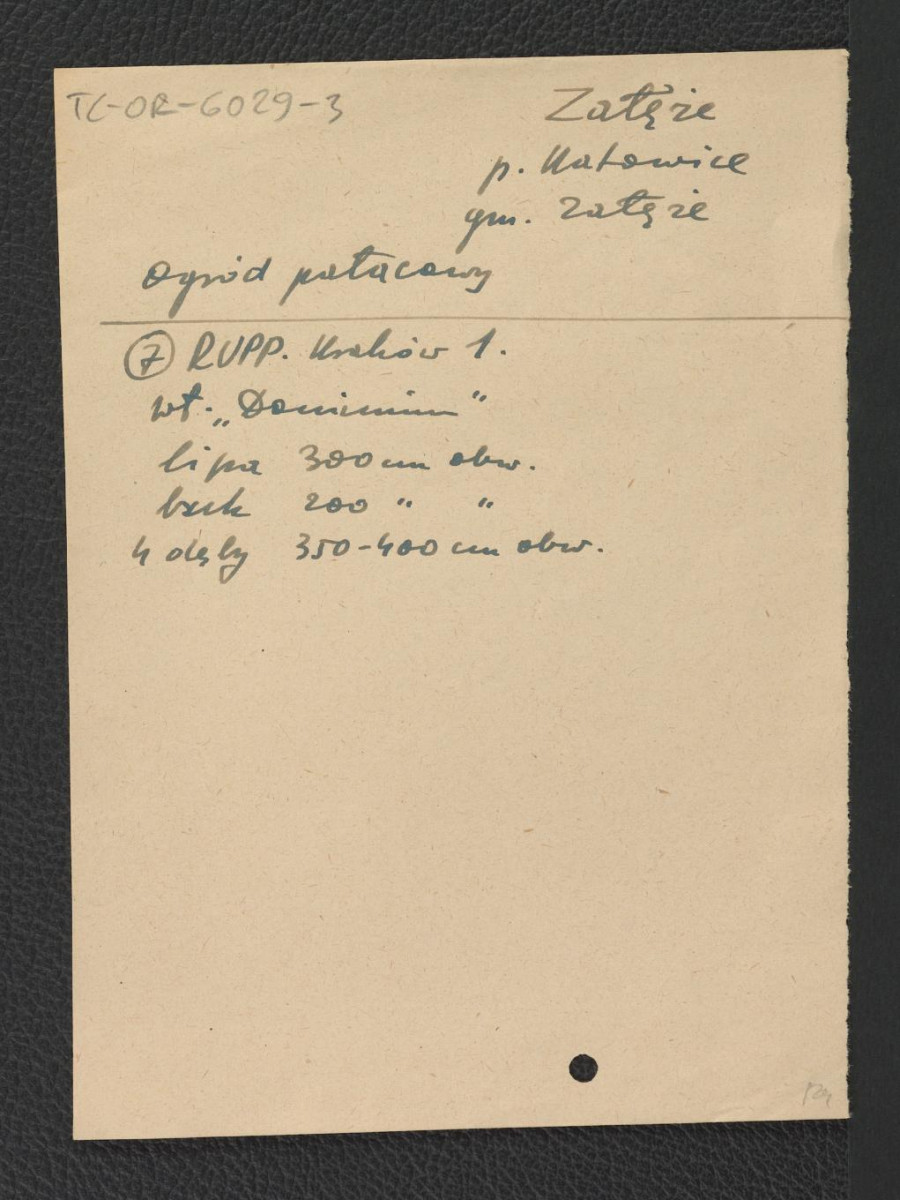 TC-OR-6029-3
Załęże
p. Katowice
gm. Załęże
Ogród pałacowy
⑦ RUPP. Kraków 1.
wł. „Dominium”
lipa 300 cm obw.
buk 200 " "
4 dęby 350-400 cm obw.